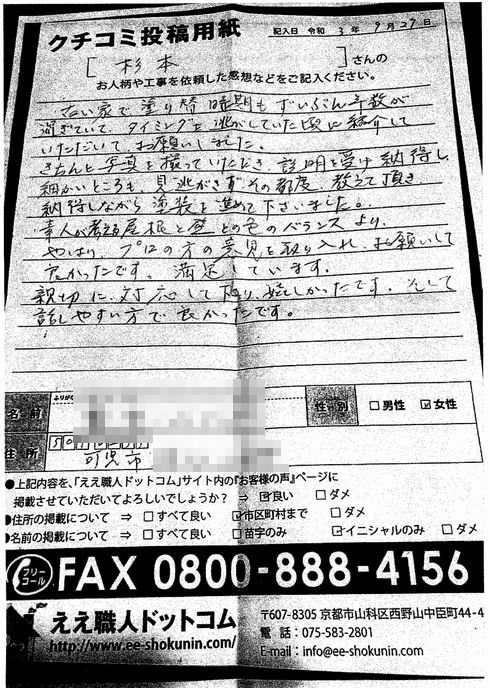 クチコミ投稿用紙
記入日 令和 3年 9月27日
[ 杉本 ]さんの
お人柄や工事を依頼した感想などをご記入ください。
古い家で塗り替時期もずいぶん年数が
過ぎていて、タイミングを逃がしていた頃に紹介して
いただいて、お願いしました。
きちんと写真を撮っていただき、説明を受け納得し
細かいところも、見逃がさずその都度、教えて頂き
納得しながら塗装を進めて下さいました。
素人が考える屋根と壁との色のバランスより、
やはり、プロの方の意見を取り入れ、お願いして
良かったです。満足しています。
親切に対応して下り、嬉しかったです。そして
話しやすい方で良かったです。
ふりがな
名前
性別 □男性 ☑女性
住所
可児市
●上記内容を、「ええ職人ドットコム」サイト内の『お客様の声』ページに
掲載させていただいてよろしいでしょうか? ⇒ ☑良い □ダメ
●住所の掲載について ⇒ □すべて良い ☑市区町村まで □ダメ
●名前の掲載について ⇒ □すべて良い □苗字のみ ☑イニシャルのみ □ダメ
フリーコール FAX 0800-888-4156
ええ職人ドットコム
http://www.ee-shokunin.com/
〒607-8305 京都市山科区西野山中臣町44-4
電話:075-583-2801
E-mail:info@ee-shokunin.com